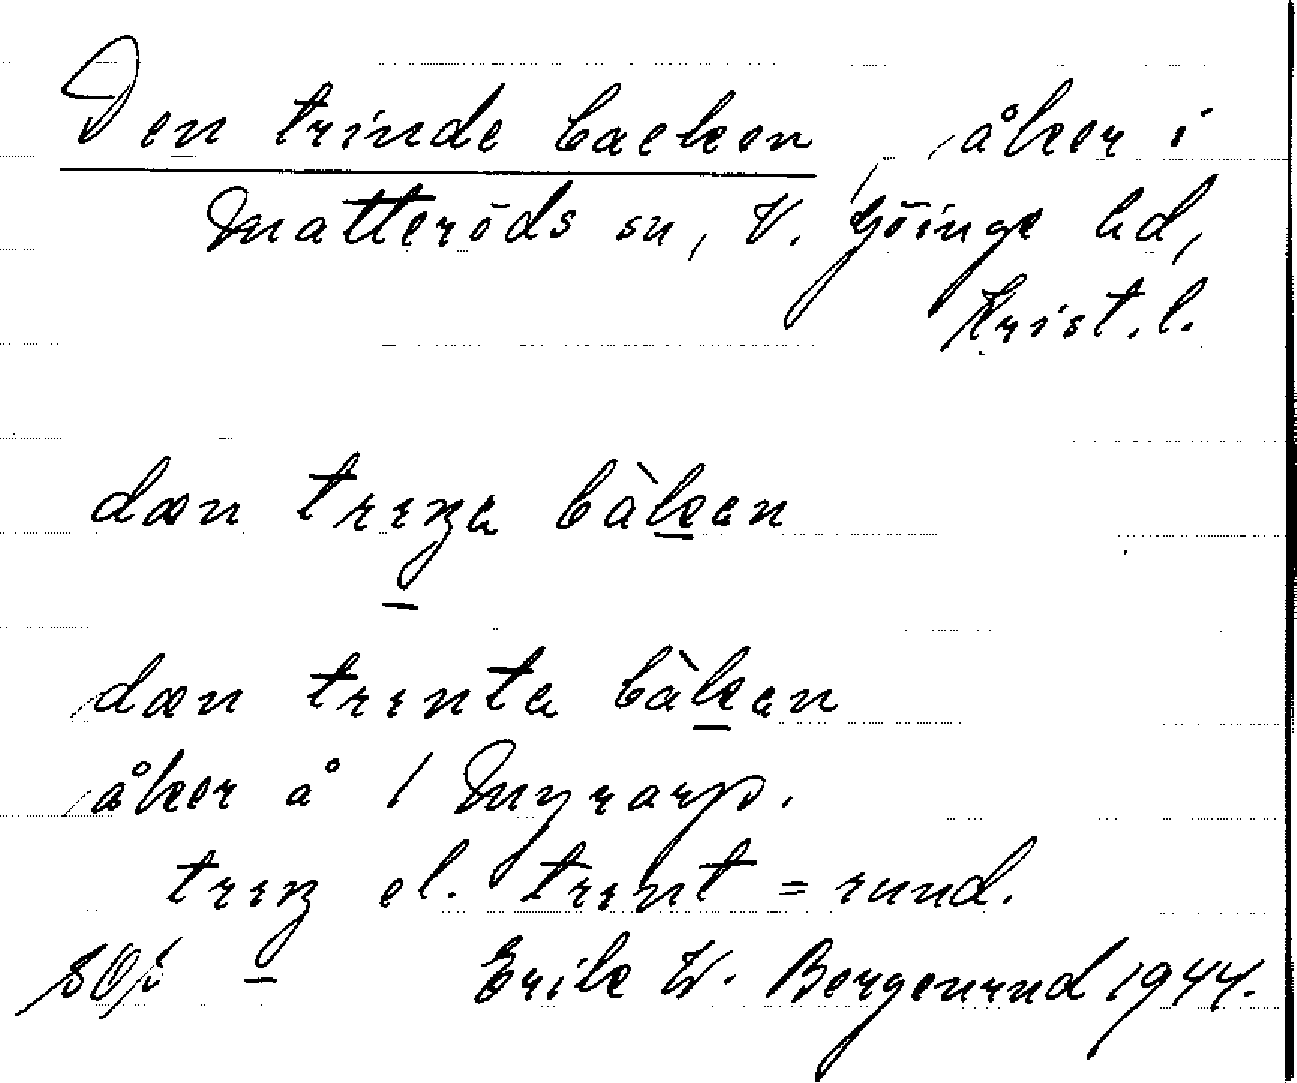 Den trinde backen, åker i
Matteröds sn, V. Göinge hd,
Krist. l.
dæn trıŋa bàkan
dæn trınta bàkan
åker å 1 Myrarp.
trıŋ el. trınt = rund.
Erik W. Borgenrud 1944.